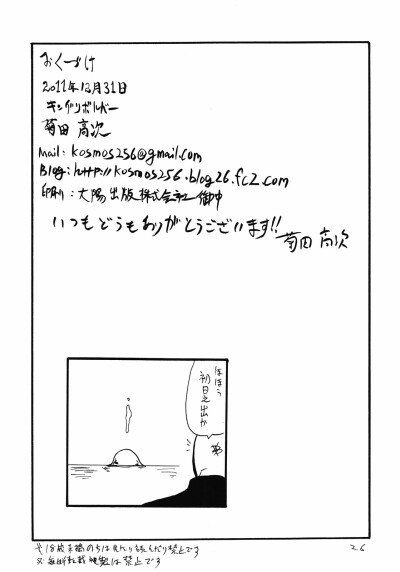 おくづけ
2011年12月31日
キングリボルバー
菊田 高次
mail: kosmos256@gmail.com
Blog: http://kosmos256.blog26.fc2.com
印刷: 大陽出版株式会社 御中
いつもどうもありがとうございます!!
菊田 高次
ほほう
初日之出か
※18歳未満のちは見たり読んだり禁止です
※無断転載複製は禁止です
26